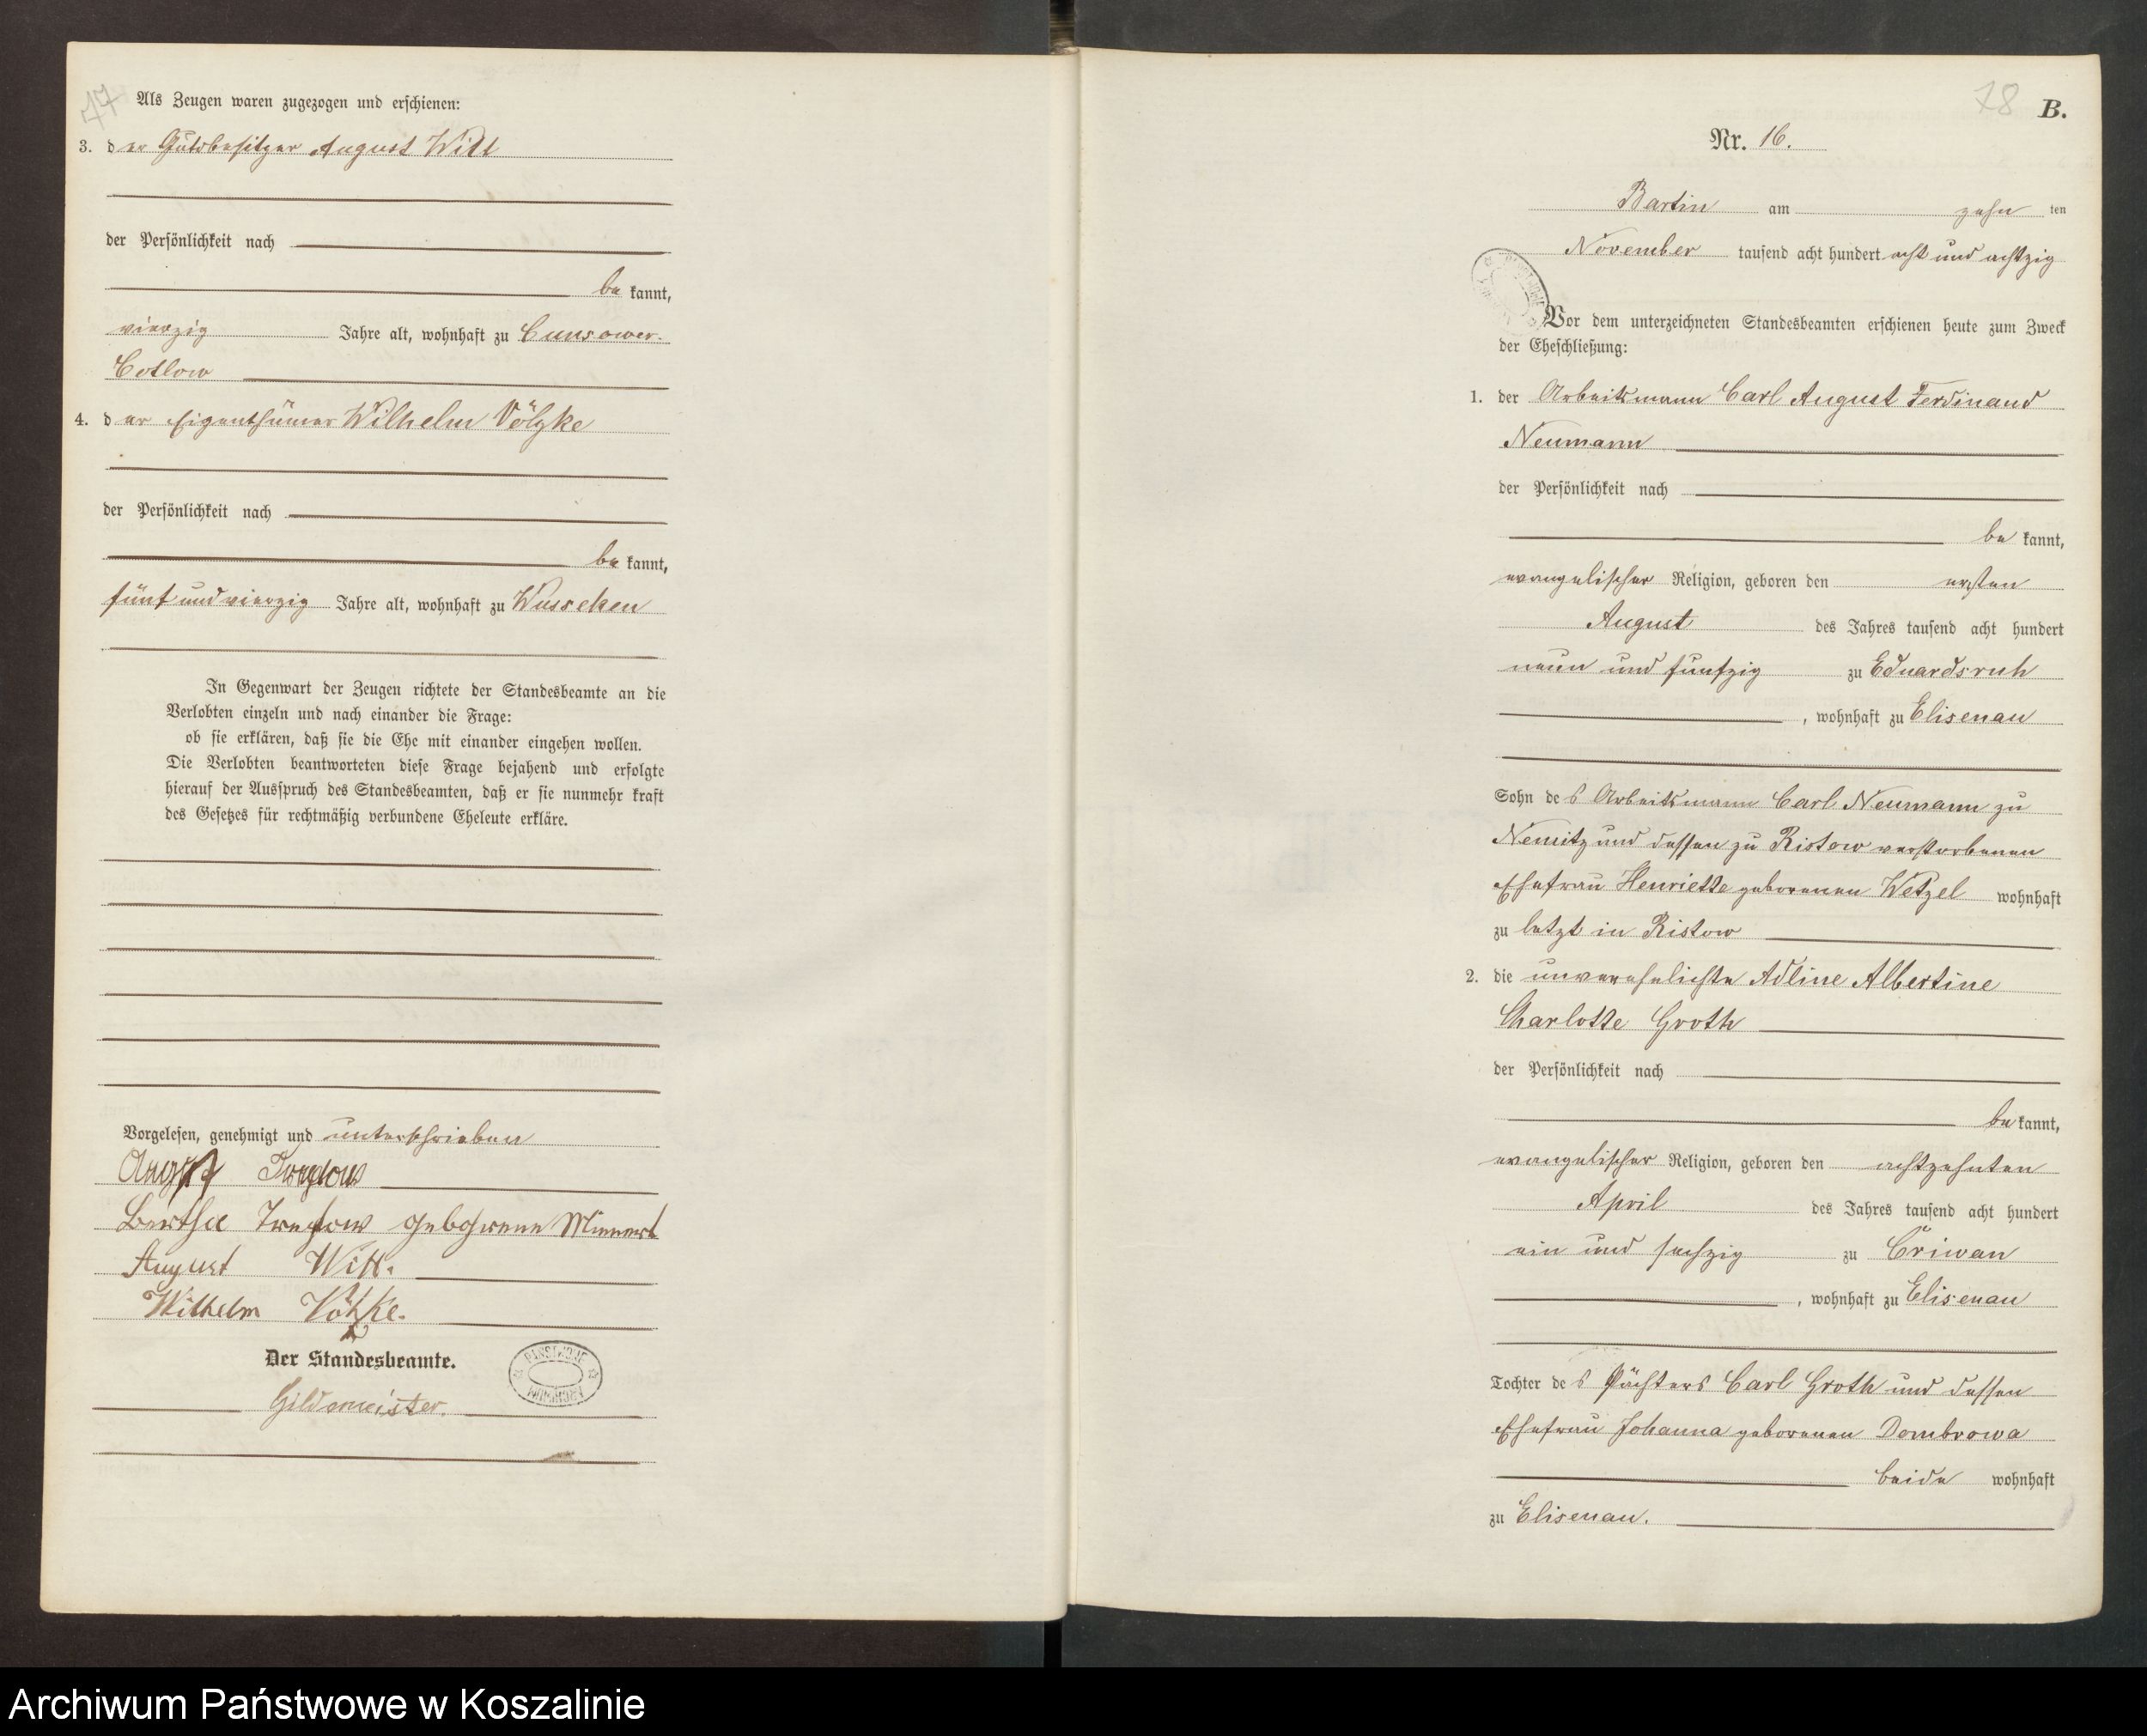 77
Als Zeugen waren zugezogen und erschienen:
3. der Gutsbesitzer August Witt
der Persönlichkeit nach
be kannt,
vierzig Jahre alt, wohnhaft zu Cunsower-
Cotlow
4. der Eigenthümer Wilhelm Völzke
der Persönlichkeit nach
be kannt,
fünf und vierzig Jahre alt, wohnhaft zu Wusseken
In Gegenwart der Zeugen richtete der Standesbeamte an die
Verlobten einzeln und nach einander die Frage:
ob sie erklären, daß sie die Ehe mit einander eingehen wollen.
Die Verlobten beantworteten diese Frage bejahend und erfolgte
hierauf der Ausspruch des Standesbeamten, daß er sie nunmehr kraft
des Gesetzes für rechtmäßig verbundene Eheleute erkläre.
Vorgelesen, genehmigt und unterschrieben
August
Bertha Treptow gebohrene
August Witt.
Wilhelm Völzke.
Der Standesbeamte.
PAŃSTWOWE ARCHIWUM
Gildemeister.
78
B.
Nr. 16.
Bartin am zehn ten
November tausend acht hundert acht und achtzig
Vor dem unterzeichneten Standesbeamten erschienen heute zum Zweck
der Eheschließung:
1. der Arbeitsmann Carl August Ferdinand
Neumann
der Persönlichkeit nach
be kannt,
evangelischer Religion, geboren den ersten
August des Jahres tausend acht hundert
neun und fünfzig zu Eduardsruh
, wohnhaft zu Elisenau
Sohn des Arbeitsmann Carl Neumann zu
Nemitz und dessen zu Ristow verstorbenen
Ehefrau Henriette geborenen Wetzel wohnhaft
zu letzt in Ristow
2. die unverehelichte Adline Albertine
Charlotte Groth
der Persönlichkeit nach
be kannt,
evangelischer Religion, geboren den achtzehnten
April des Jahres tausend acht hundert
ein und sechzig zu Criwan
, wohnhaft zu Elisenau
Tochter des Pächters Carl Groth und dessen
Ehefrau Johanna geborenen Dombrowa
beide wohnhaft
zu Elisenau.
Archiwum Państwowe w Koszalinie